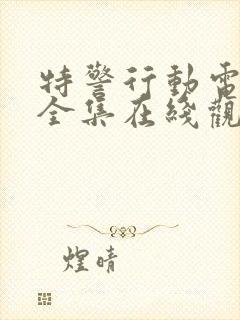 特警行動電
全集在綫觀
煌晴